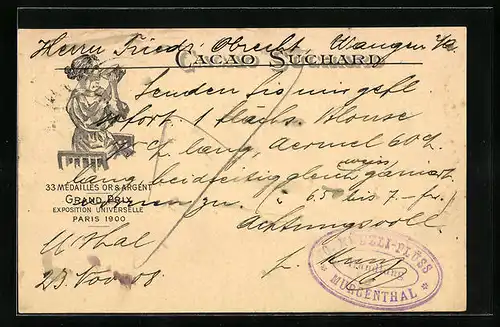 Herrn Friedr. Obrecht, Wangen a/A
CACAO SUCHARD
Senden Sie mir gefl.
sofort 1 Blouse
lang, Aermel 60 cq.
weiss
lang beidseitig gleich garniert
33 MEDAILLES OR & ARGENT
GRAND PRIX
EXPOSITION UNIVERSELLE
PARIS 1900
zu. ( à 6.50 bis 7.- fr.)
Achtungsvoll
M'thal
23. Nov. 08
KUENZLI-PLÜSS
Handlung
MURGENTHAL